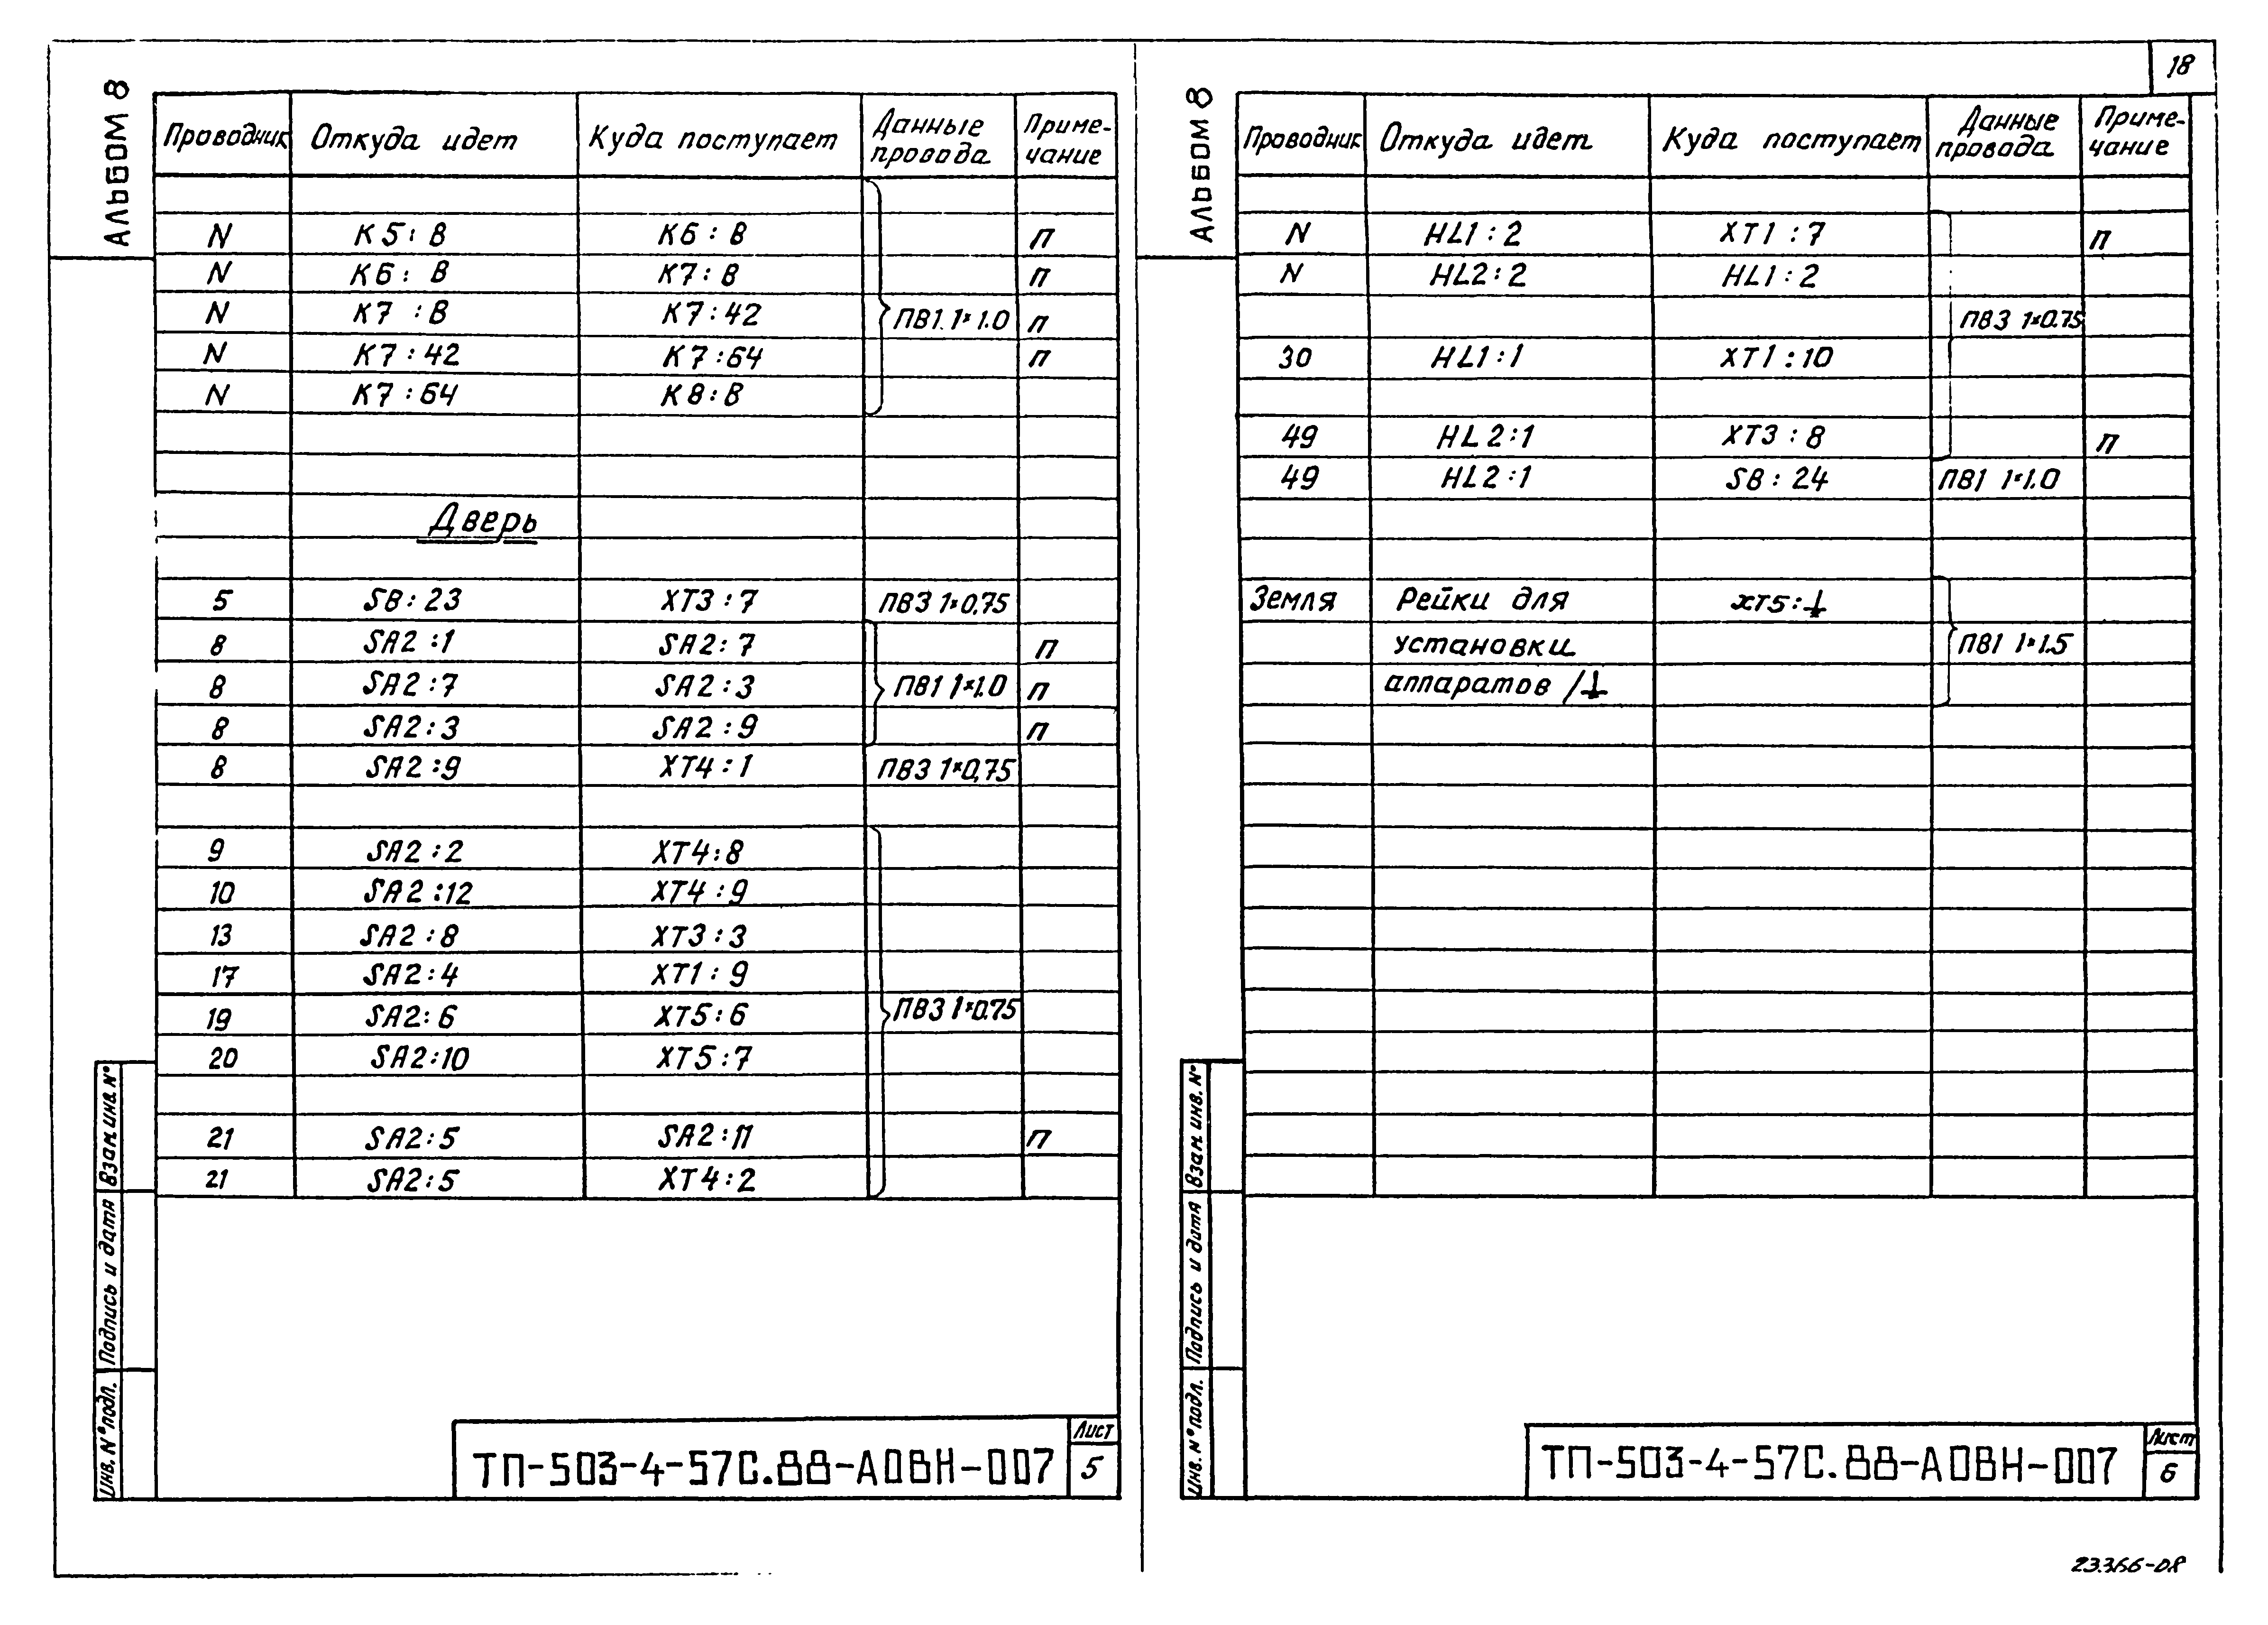 18
АЛЬБОМ 8
Проводник Откуда идет Куда поступает Данные провода Приме-чание
N К5: В К6: В П
N К6: В К7: В П
N К7 : В К7:42 ПВ1 1×1.0 П
N К7:42 К7:64 П
N К7:64 К8:В
Дверь
5 SB:23 XT3:7 ПВ3 1×0,75
8 SA2:1 SA2:7 П
8 SA2:7 SA2:3 ПВ1 1×1.0 П
8 SA2:3 SA2:9 П
8 SA2:9 XT4:1 ПВ3 1×0,75
9 SA2:2 XT4:8
10 SA2:12 XT4:9
13 SA2:8 XT3:3
17 SA2:4 XT1:9
19 SA2:6 XT5:6 ПВ3 1×0.75
20 SA2:10 XT5:7
21 SA2:5 SA2:11 П
21 SA2:5 XT4:2
Взам. инв. №
Подпись и дата
Инв. № подл.
ТП-503-4-57С.88-АОВН-007
Лист
5
АЛЬБОМ 8
Проводник Откуда идет Куда поступает Данные провода Приме-чание
N HL1:2 XT1:7 П
N HL2:2 HL1:2
ПВ3 1×0.75
30 HL1:1 XT1:10
49 HL2:1 XT3:8 П
49 HL2:1 SB:24 ПВ1 1×1.0
Земля Рейки для XT5:⏚
установки ПВ1 1×1.5
аппаратов /⏚
Взам. инв. №
Подпись и дата
Инв. № подл.
ТП-503-4-57С.88-АОВН-007
Лист
6
23366-08